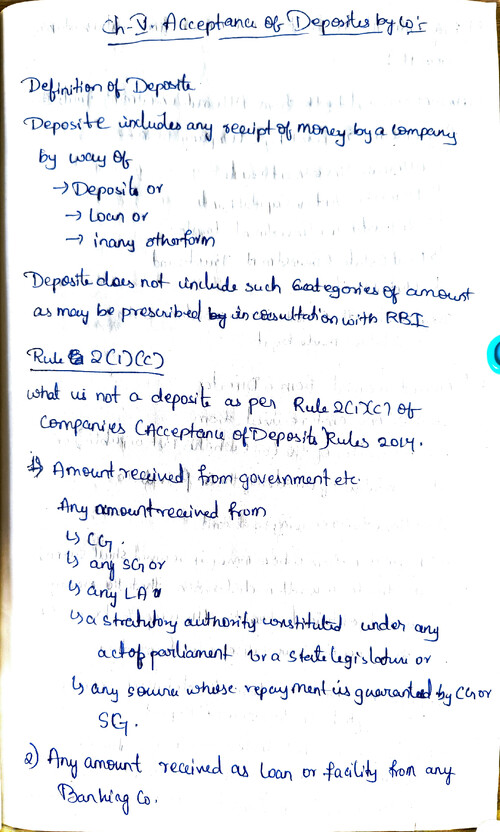 Ch-V. Acceptance of Deposites by Co's
Definition of Deposite
Deposite includes any receipt of money by a company
by way of
→ Deposite or
→ Loan or
→ in any other form
Deposite does not include such Categories of amount
as may be prescribed by in cosultation with RBI
Rule 2(1)(c)
what is not a deposite as per Rule 2(1)(c) of
Companies (Acceptance of Deposits) Rules 2014.
1) Amount received from government etc.
Any amount received from
↳ CG.
↳ any SG or
↳ any LA
↳ a stratutory authority constituted under any
act of parliament or a state legislature or
↳ any source whose repayment is guaranted by CG or
SG.
2) Any amount received as loan or facility from any
Banking Co.